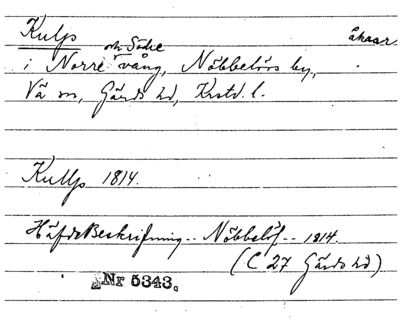 Kulps åkrar
och Söe
i Norre vång, Nöbbelövs by,
Vä sn, Gärds hd, Krstd. l.
Kullps 1814.
Häfde Beskrifning.. Nöbbelöf.. 1814.
(C 27 Gärds hd)
Nr 5343.